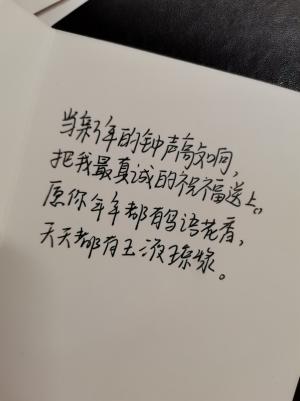 当新年的钟声高如响,
把我最真诚的祝福送上。
愿你年年都有鸟语花香,
天天都有玉液琼浆。